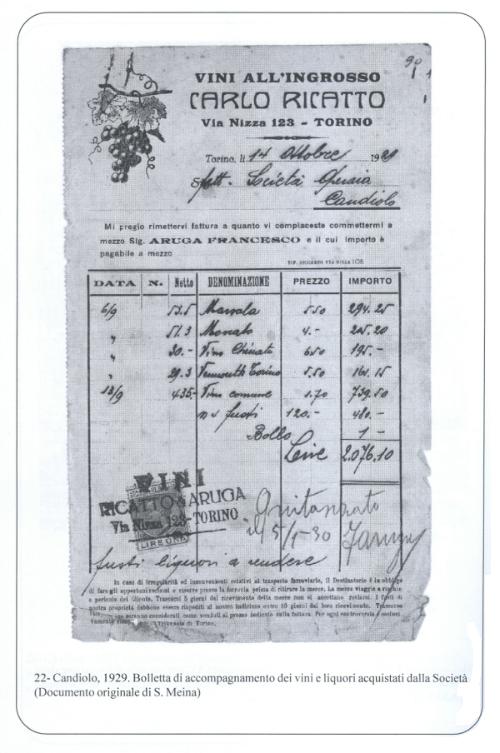 VINI ALL'INGROSSO
CARLO RICATTO
Via Nizza 123 - TORINO
Torino, li 14 Ottobre 1929
Spett. Società Operaia
Candiolo
Mi pregio rimettervi fattura a quanto vi compiaceste commettermi a
mezzo Sig. ARUGA FRANCESCO e il cui importo è
pagabile a mezzo
DATA N. Netto DENOMINAZIONE PREZZO IMPORTO
6/9 53.5 Marsala 5.50 294.25
" 51.3 Moscato 4.- 205.20
" 30.- Vino Chinato 6.50 195.-
" 29.3 Vermouth Torino 5.50 161.15
12/9 435- Vino comune 1.70 739.50
n 4 fusti 120.- 480.-
Bollo 1 -
Lire 2.076.10
VINI
RICATTO & ARUGA
Via Nizza 123-TORINO
Quitanzato
il 5/1-30
fusti liquori a rendere
In caso di irregolarità ed inconvenienti relativi al trasporto ferroviario, il Destinatario è in obbligo
di fare gli opportuni reclami e riserve presso la ferrovia prima di ritirare la merce. La merce viaggia a rischio
e pericolo del cliente. Trascorsi 5 giorni dal ricevimento della merce non si accettano reclami. I fusti di
nostra proprietà debbono essere rispediti al nostro indirizzo entro 30 giorni dal loro ricevimento. Trascorso
saranno considerati come venduti al prezzo indicato sulla fattura. Per ogni controversia
Tribunale di Torino.
22- Candiolo, 1929. Bolletta di accompagnamento dei vini e liquori acquistati dalla Società
(Documento originale di S. Meina)